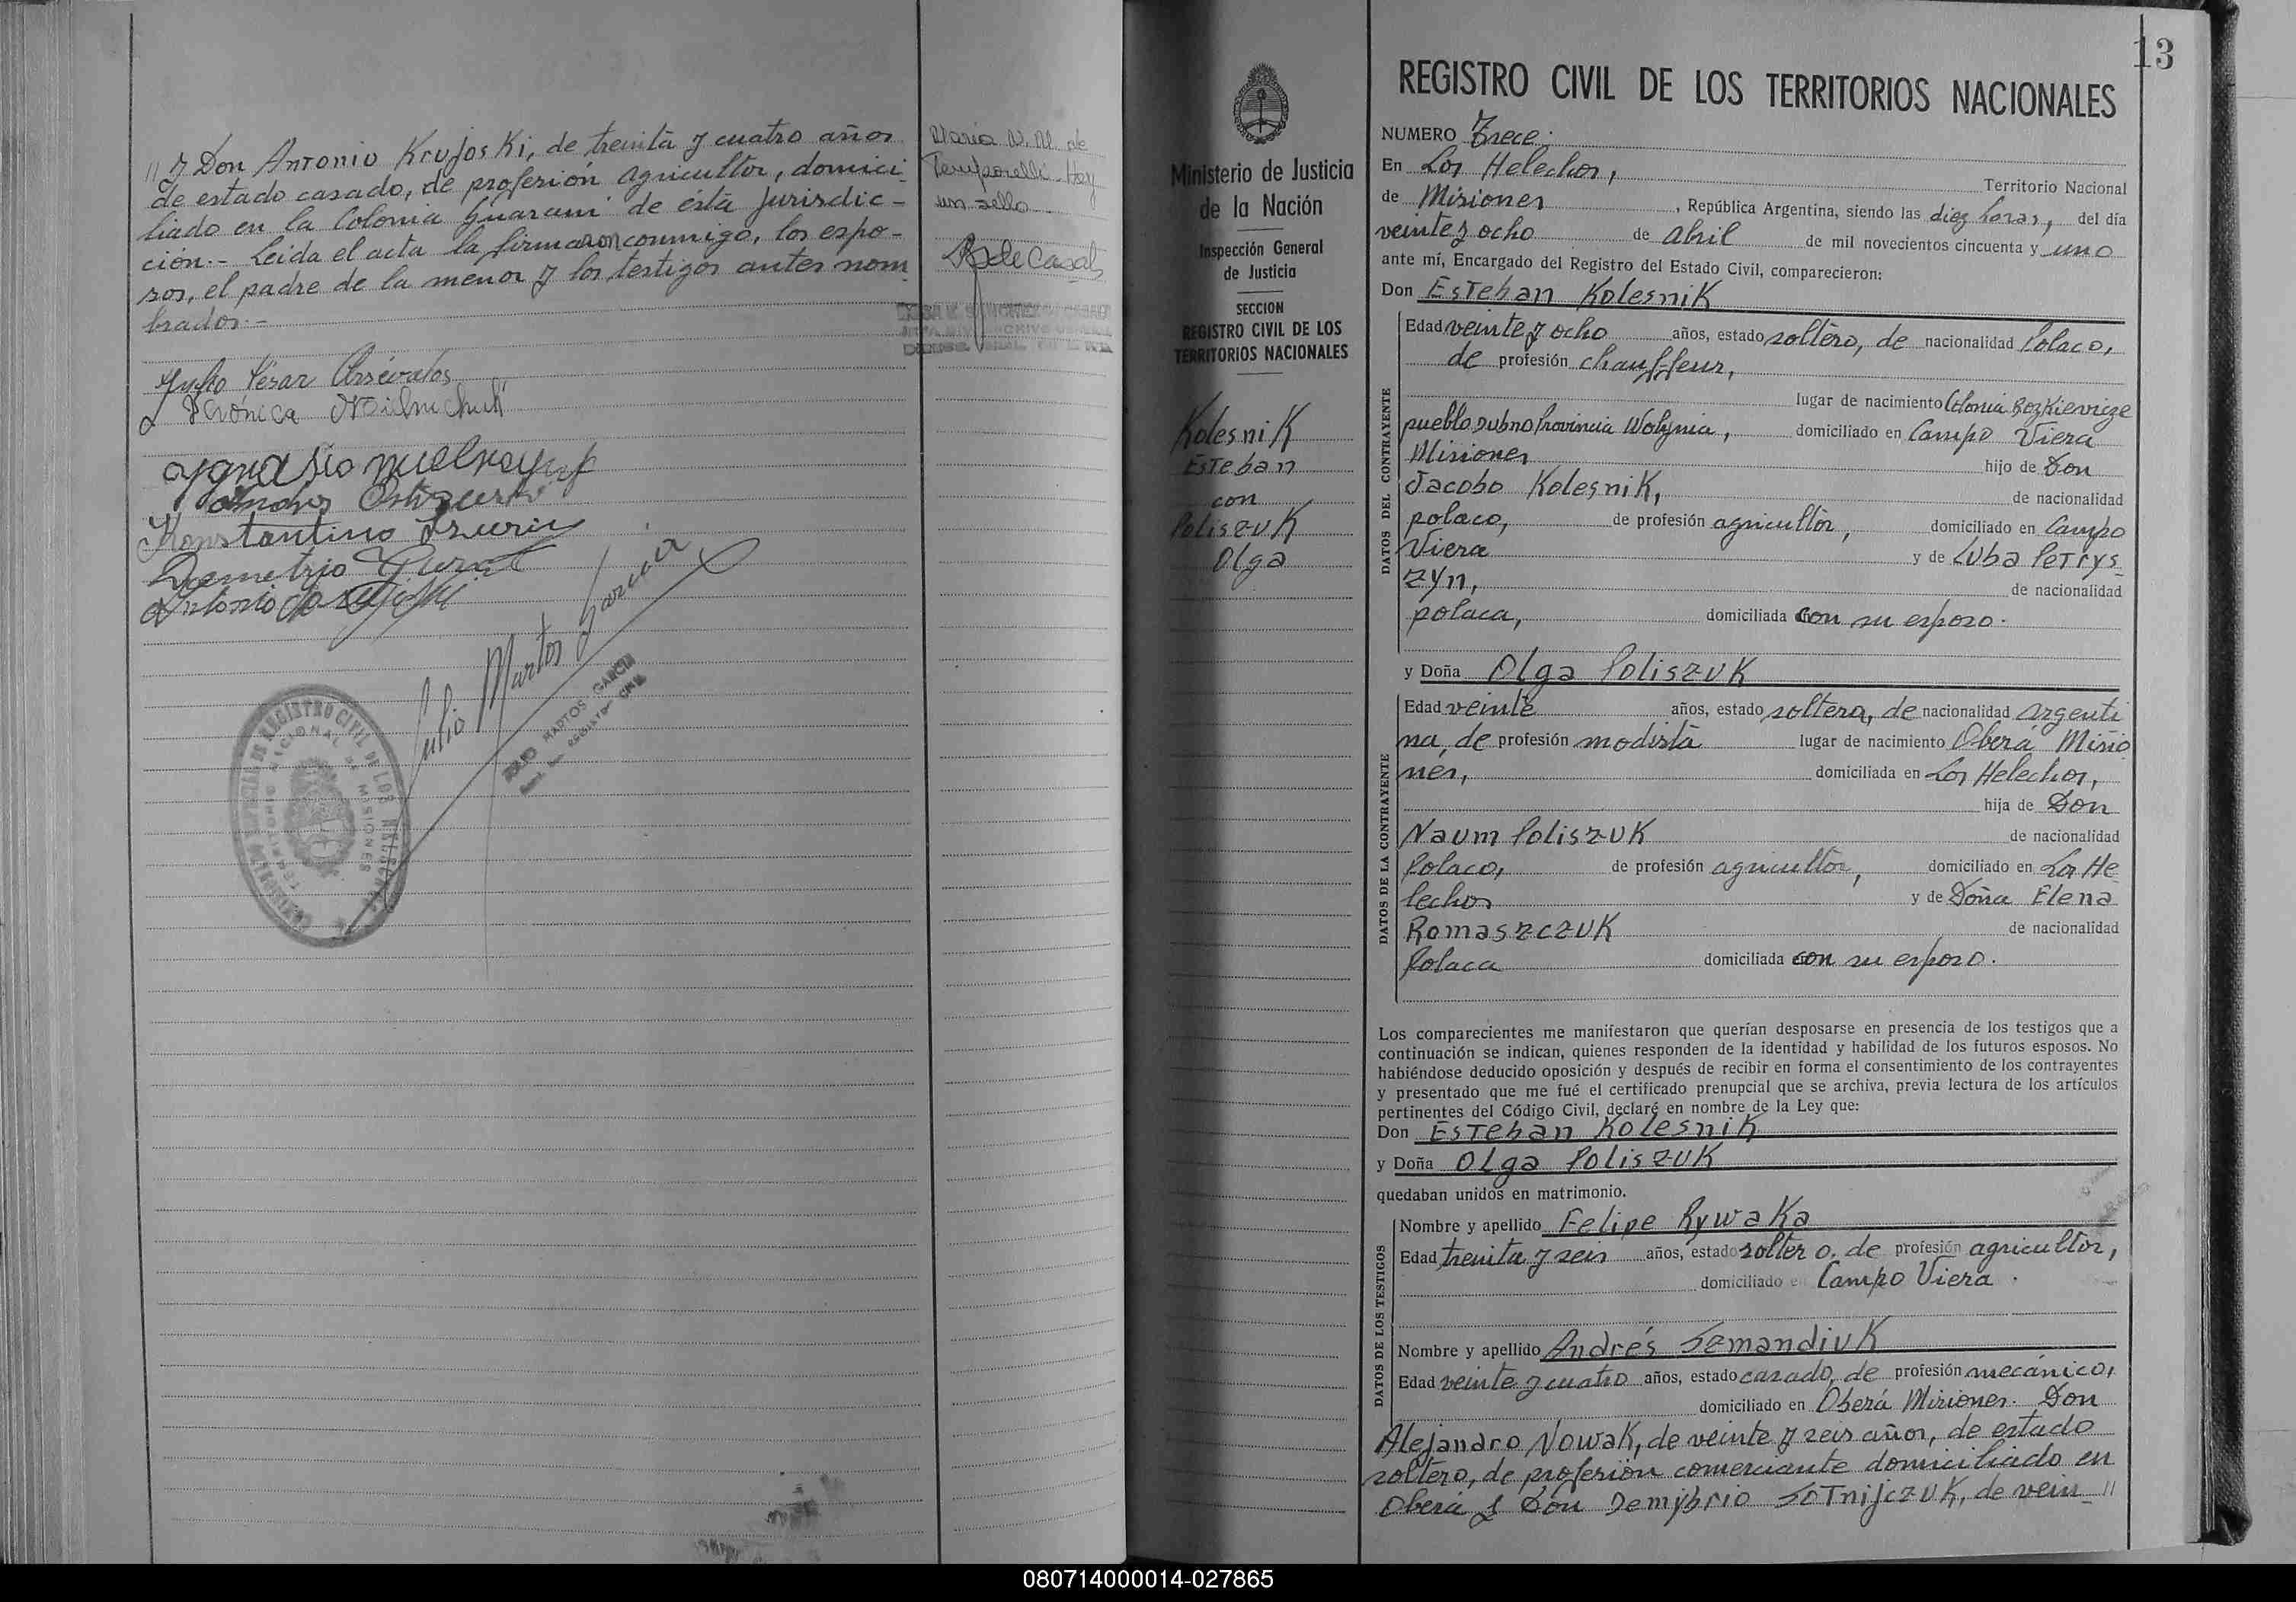 // y Don Antonio Krujoski, de treinta y cuatro años
de estado casado, de profesión agricultor, domici-
liado en la Colonia Guaraní de ésta jurisdic-
ción.- Leida el acta la firmaron conmigo, los espo-
sos, el padre de la menor y los testigos antes nom
brados.-
Julio César Arrévalos
Verónica
Konstantino
Demetrio
Antonio
Julio Martos Garcia
JULIO MARTOS GARCIA
REGISTRO CIVIL
María
Temporelli - Hay
un sello
13
Ministerio de Justicia
de la Nación
Inspección General
de Justicia
SECCION
REGISTRO CIVIL DE LOS
TERRITORIOS NACIONALES
KolesniK
Esteban
con
PoliszuK
Olga
REGISTRO CIVIL DE LOS TERRITORIOS NACIONALES
NUMERO Trece.
En Los Helechos, Territorio Nacional
de Misiones, República Argentina, siendo las diez horas, del día
veinte y ocho de Abril de mil novecientos cincuenta y uno
ante mí, Encargado del Registro del Estado Civil, comparecieron:
Don Esteban KolesniK
DATOS DEL CONTRAYENTE
Edad veinte y ocho años, estado soltero, de nacionalidad Polaco,
de profesión chauffeur,
lugar de nacimiento Colonia Bozkievicze
pueblo Dubno Provincia Wolynia, domiciliado en Campo Viera
Misiones hijo de Don
Jacobo KolesniK, de nacionalidad
polaco, de profesión agricultor, domiciliado en Campo
Viera y de Luba Petrys
zyn, de nacionalidad
polaca, domiciliada con su esposo.
y Doña Olga PoliszuK
DATOS DE LA CONTRAYENTE
Edad veinte años, estado soltera, de nacionalidad argenti
na, de profesión modista lugar de nacimiento Oberá Misio
nes, domiciliada en Los Helechos,
hija de Don
Naum PoliszuK de nacionalidad
Polaco, de profesión agricultor, domiciliado en Los He
lechos y de Doña Elena
RomaszczuK de nacionalidad
Polaca domiciliada con su esposo.
Los comparecientes me manifestaron que querían desposarse en presencia de los testigos que a
continuación se indican, quienes responden de la identidad y habilidad de los futuros esposos. No
habiéndose deducido oposición y después de recibir en forma el consentimiento de los contrayentes
y presentado que me fué el certificado prenupcial que se archiva, previa lectura de los artículos
pertinentes del Código Civil, declaré en nombre de la Ley que:
Don Esteban KolesniK
y Doña Olga PoliszuK
quedaban unidos en matrimonio.
DATOS DE LOS TESTIGOS
Nombre y apellido Felipe RywaKa
Edad treinta y seis años, estado soltero, de profesión agricultor,
domiciliado en Campo Viera.
Nombre y apellido Andrés SzmandiuK
Edad veinte y cuatro años, estado casado, de profesión mecánico,
domiciliado en Oberá Misiones. Don
Alejandro NowaK, de veinte y seis años, de estado
soltero, de profesión comerciante domiciliado en
Oberá y Don Demybrio SotnijczuK, de vein //
080714000014-027865